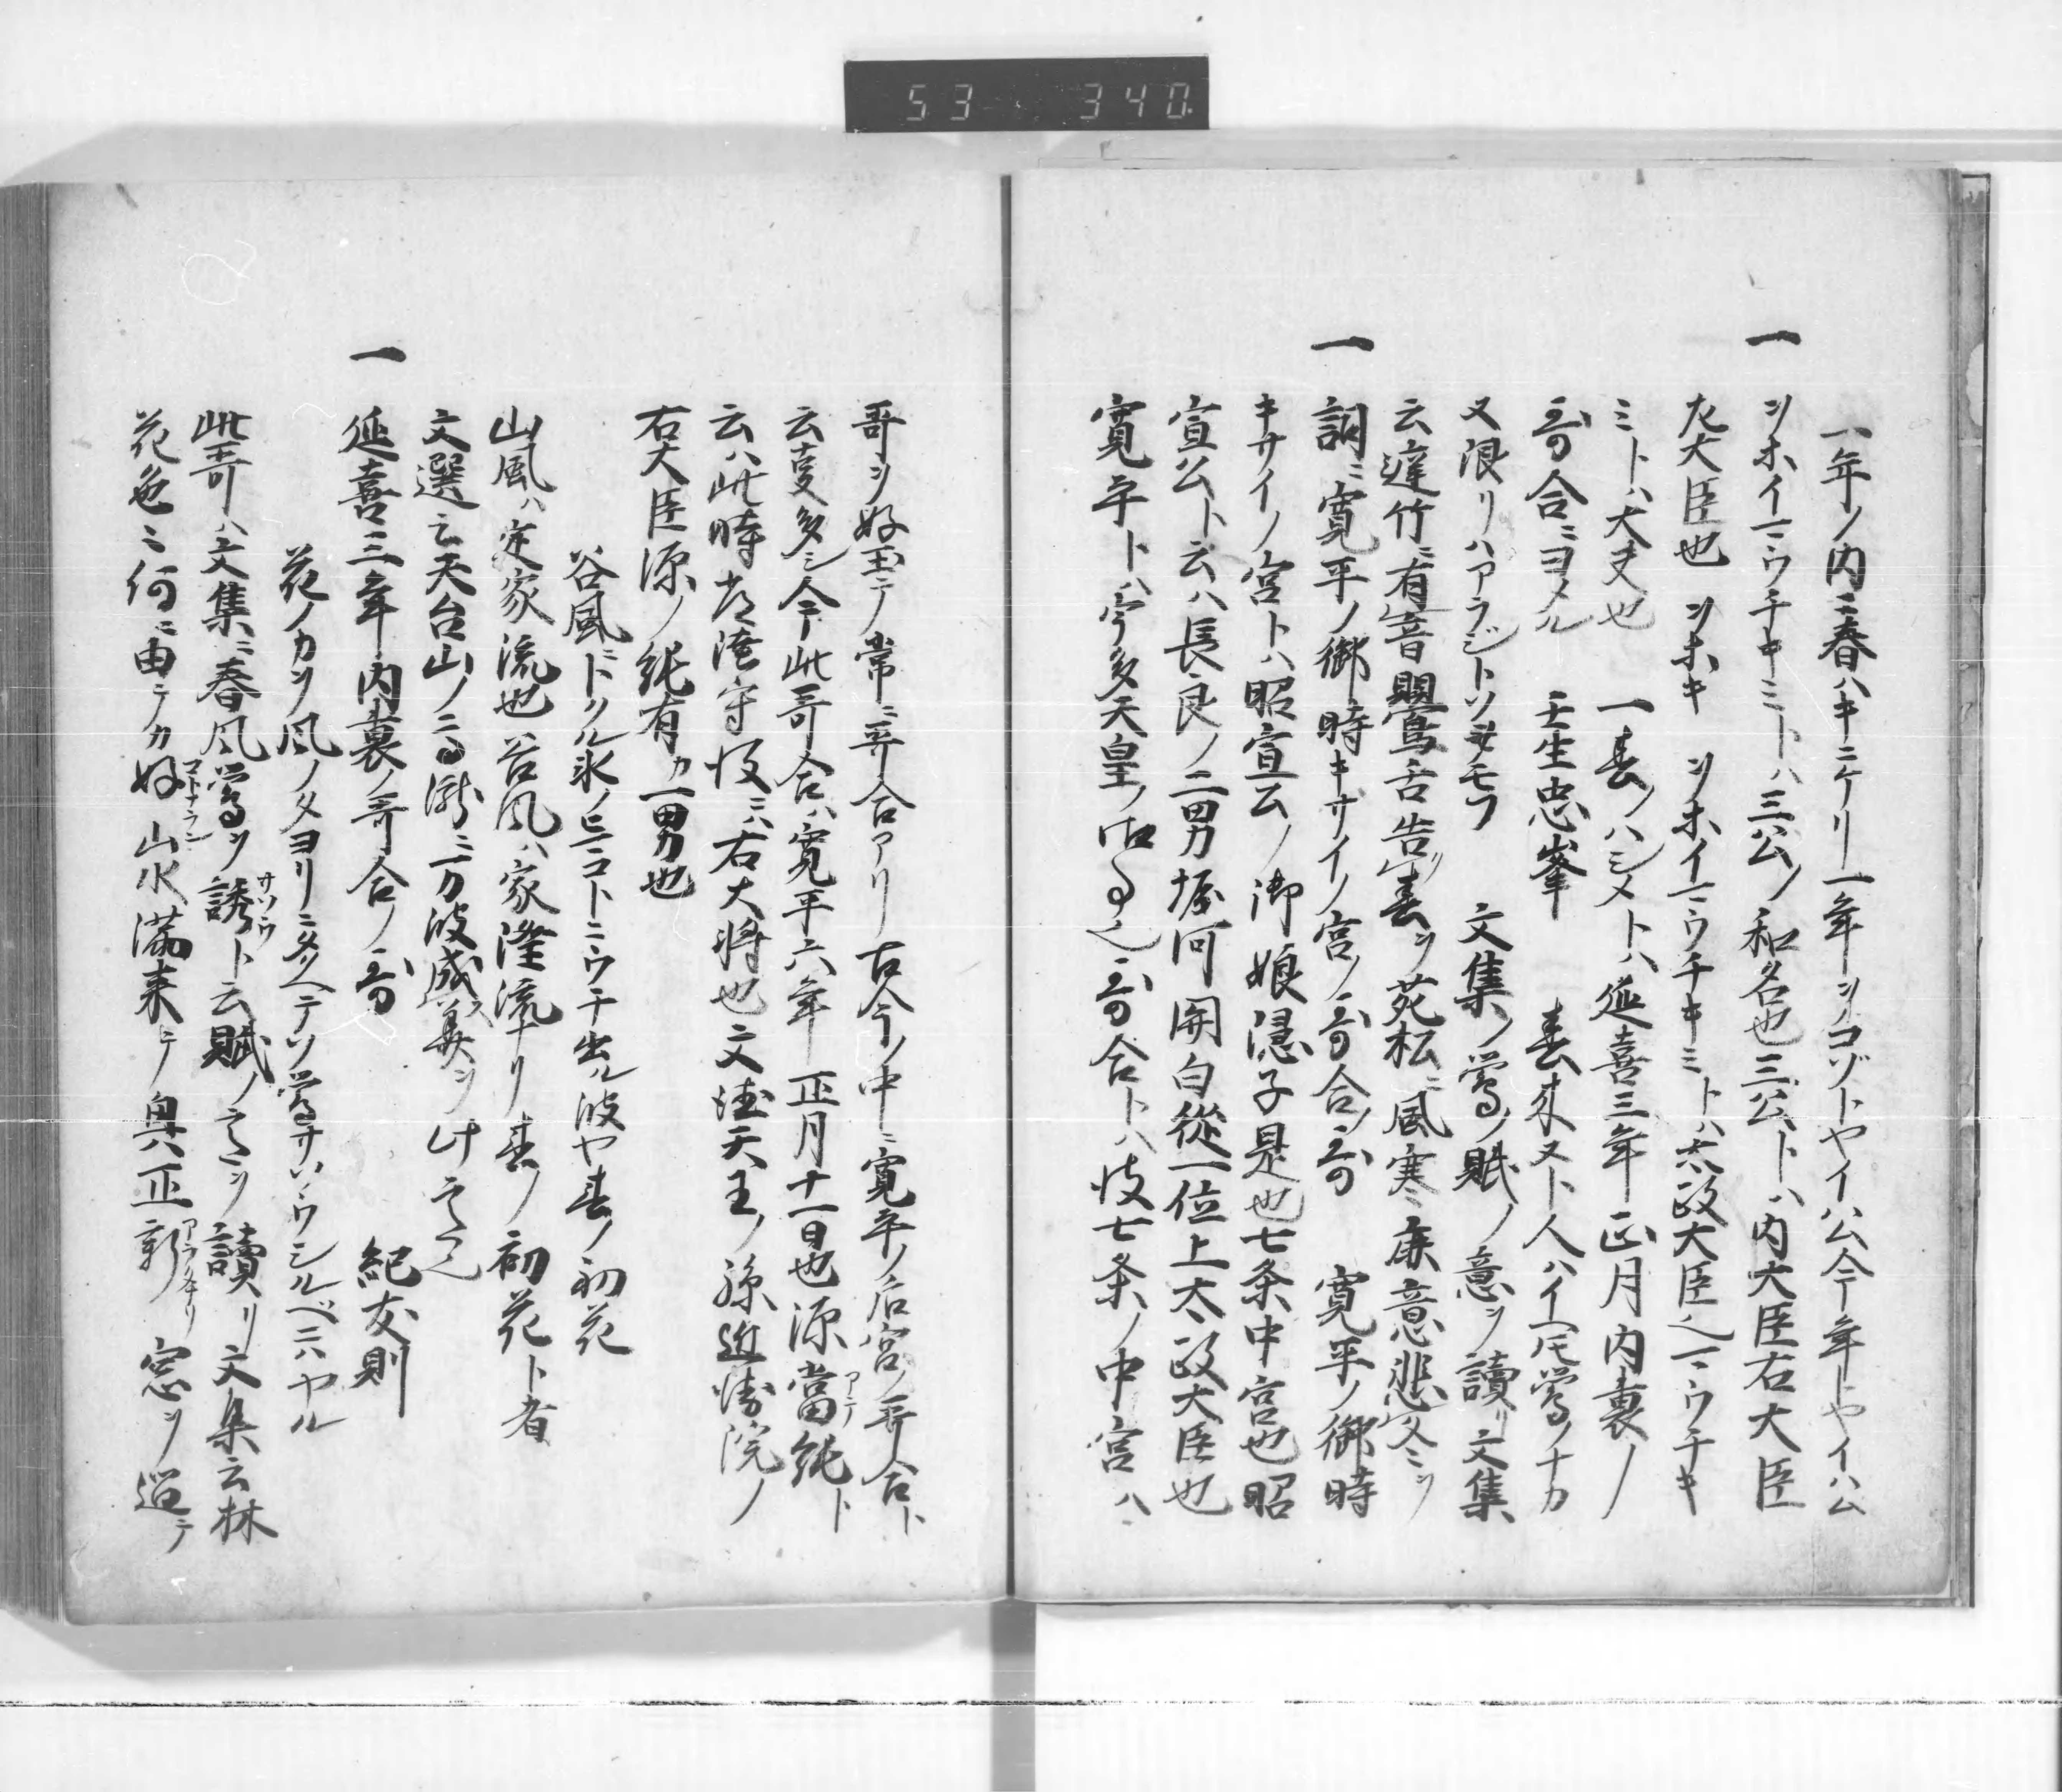 53 340
一年ノ内ニ春ハキニケリ一年ヲコゾトヤイハム今年トヤイハム
一 ヲホイマウチキミトハ三公ノ和名也三公トハ内大臣右大臣
左大臣也 ヲホキ ヲホイマウチキミトハ太政大臣也マウチキ
ミトハ大夫也 一春ノハシメトハ延喜三年正月内裏ノ
哥合ニヨメル 壬生忠峯 春来ヌト人ハイヘ𪜈鶯ノナカ
ヌ限リハアラジトソヲモフ 文集ノ鶯ノ賦ノ意ヲ讀リ文集
云 竹ニ有音 鸎舌告春ヲ苑松ニ風寒 意悲冬ミヲ
一 詞ニ寛平ノ御時キサイノ宮ノ哥合ノ哥 寛平ノ御時
キサイノ宮トハ昭宣公ノ御娘隠子是也七条中宮也昭
宣公ト云ハ長良ノ二男堀河関白従一位上太政大臣也
寛平トハ宇多天皇ノ御事也哥合トハ彼七条ノ中宮ハ
哥ヲ好玉テ常ニ哥合アリ古今ノ中ニ寛平ノ后宮ノ哥合ト
云事多シ今此哥合ハ寛平六年正月十一日也源當純ト
云ハ此時 守後ニハ右大将也文徳天王ノ孫近 院ノ
右大臣源ノ純有カ一男也
谷風ニトクル氷ノヒマコトニウチ出ル波ヤ春ノ初花
山風ハ定家流也谷風ハ家隆流ナリ春ノ初花ト者
文選云天台山ノ 瀧ニ万波盛 ヲ 心也
一 延喜三年内裏ノ哥合ノ哥 紀友則
花ノカヲ風ノタヨリニタクヘテソ鶯サソウシルベニハヤル
此哥ハ文集ニ春風鶯ヲ誘ト云賦ノ心ヲ讀リ文集云林
花色ミ何ニ由テカ好 山水満来テ興正新 窓ヲ テ